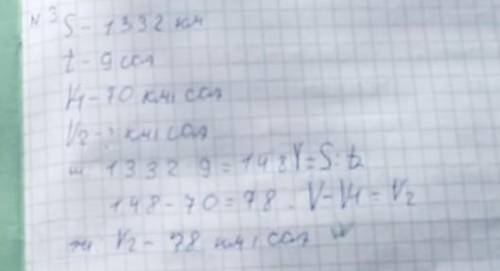 N3 S - 1332 км
t - 9 соғ
V1 - 70 км/соғ
V2 - ? км/соғ
1332 9 = 148 V = S : t
148 - 70 = 78 . V - V1 = V2
V2 - 78 км/соғ